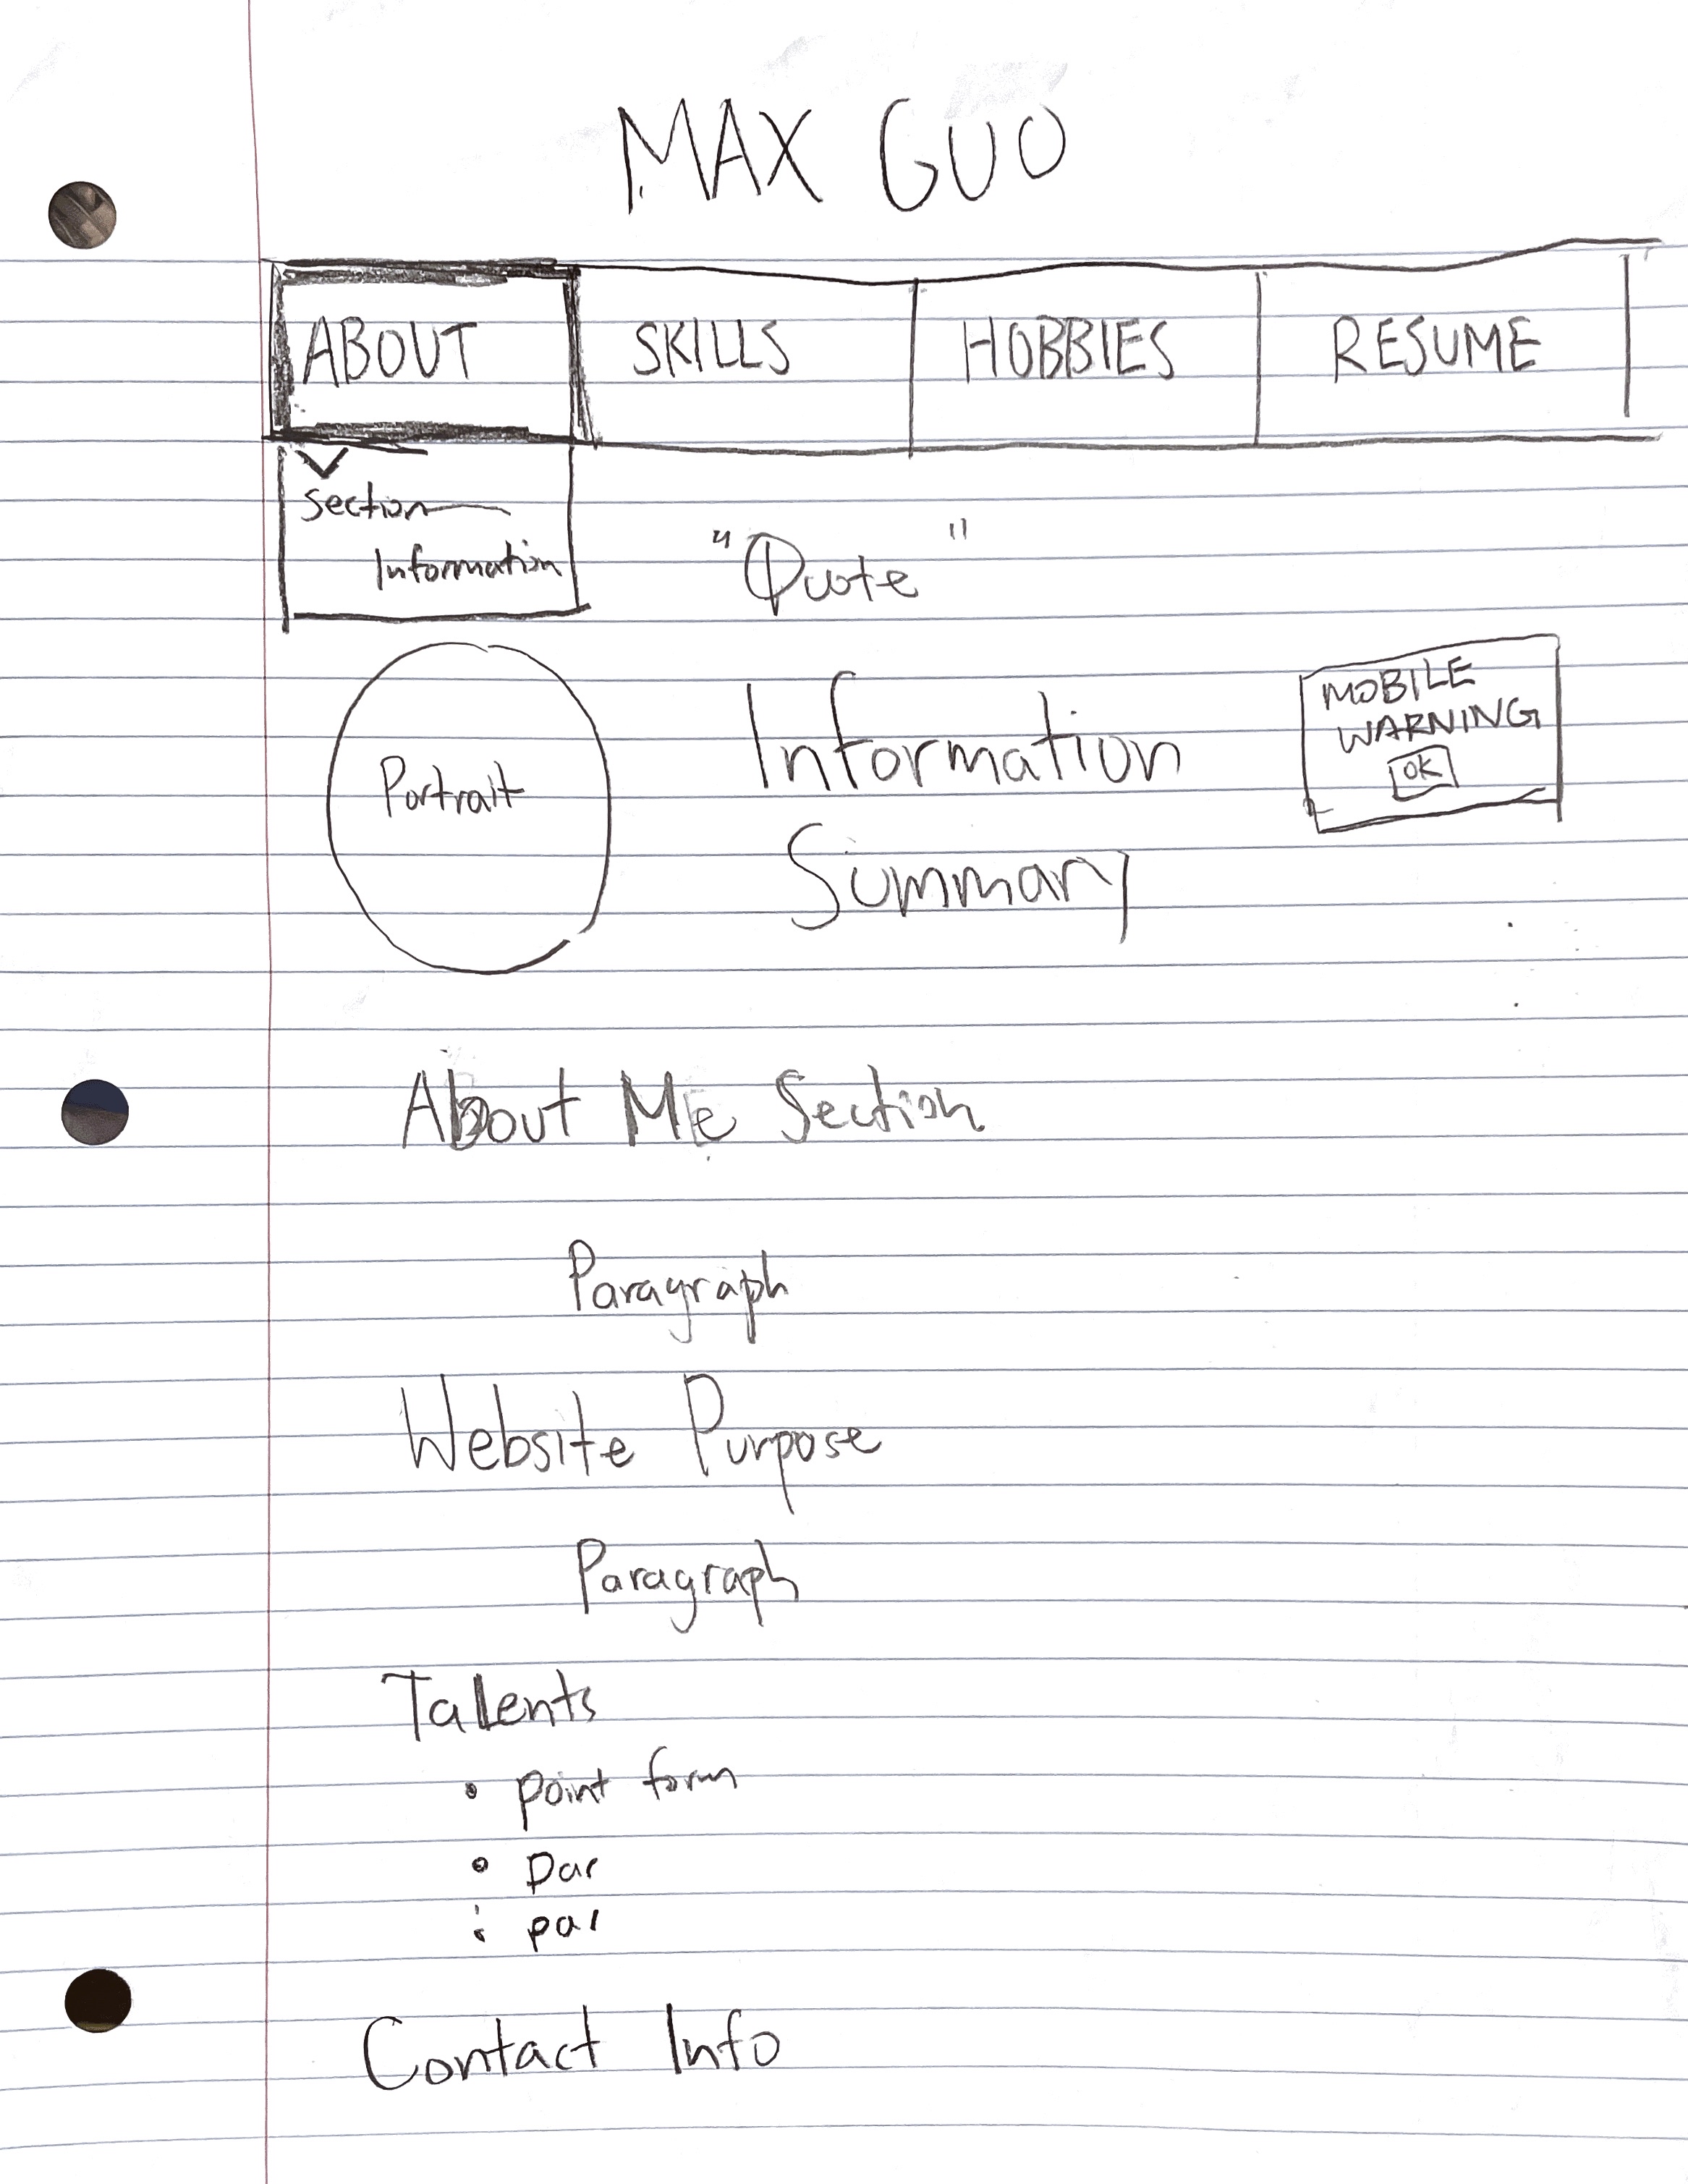 MAX GUO
ABOUT SKILLS HOBBIES RESUME
Section
Information
"Quote"
Portrait
Information
Summary
MOBILE
WARNING
OK
About Me Section
Paragraph
Website Purpose
Paragraph
Talents
• point form
• par
• par
Contact Info